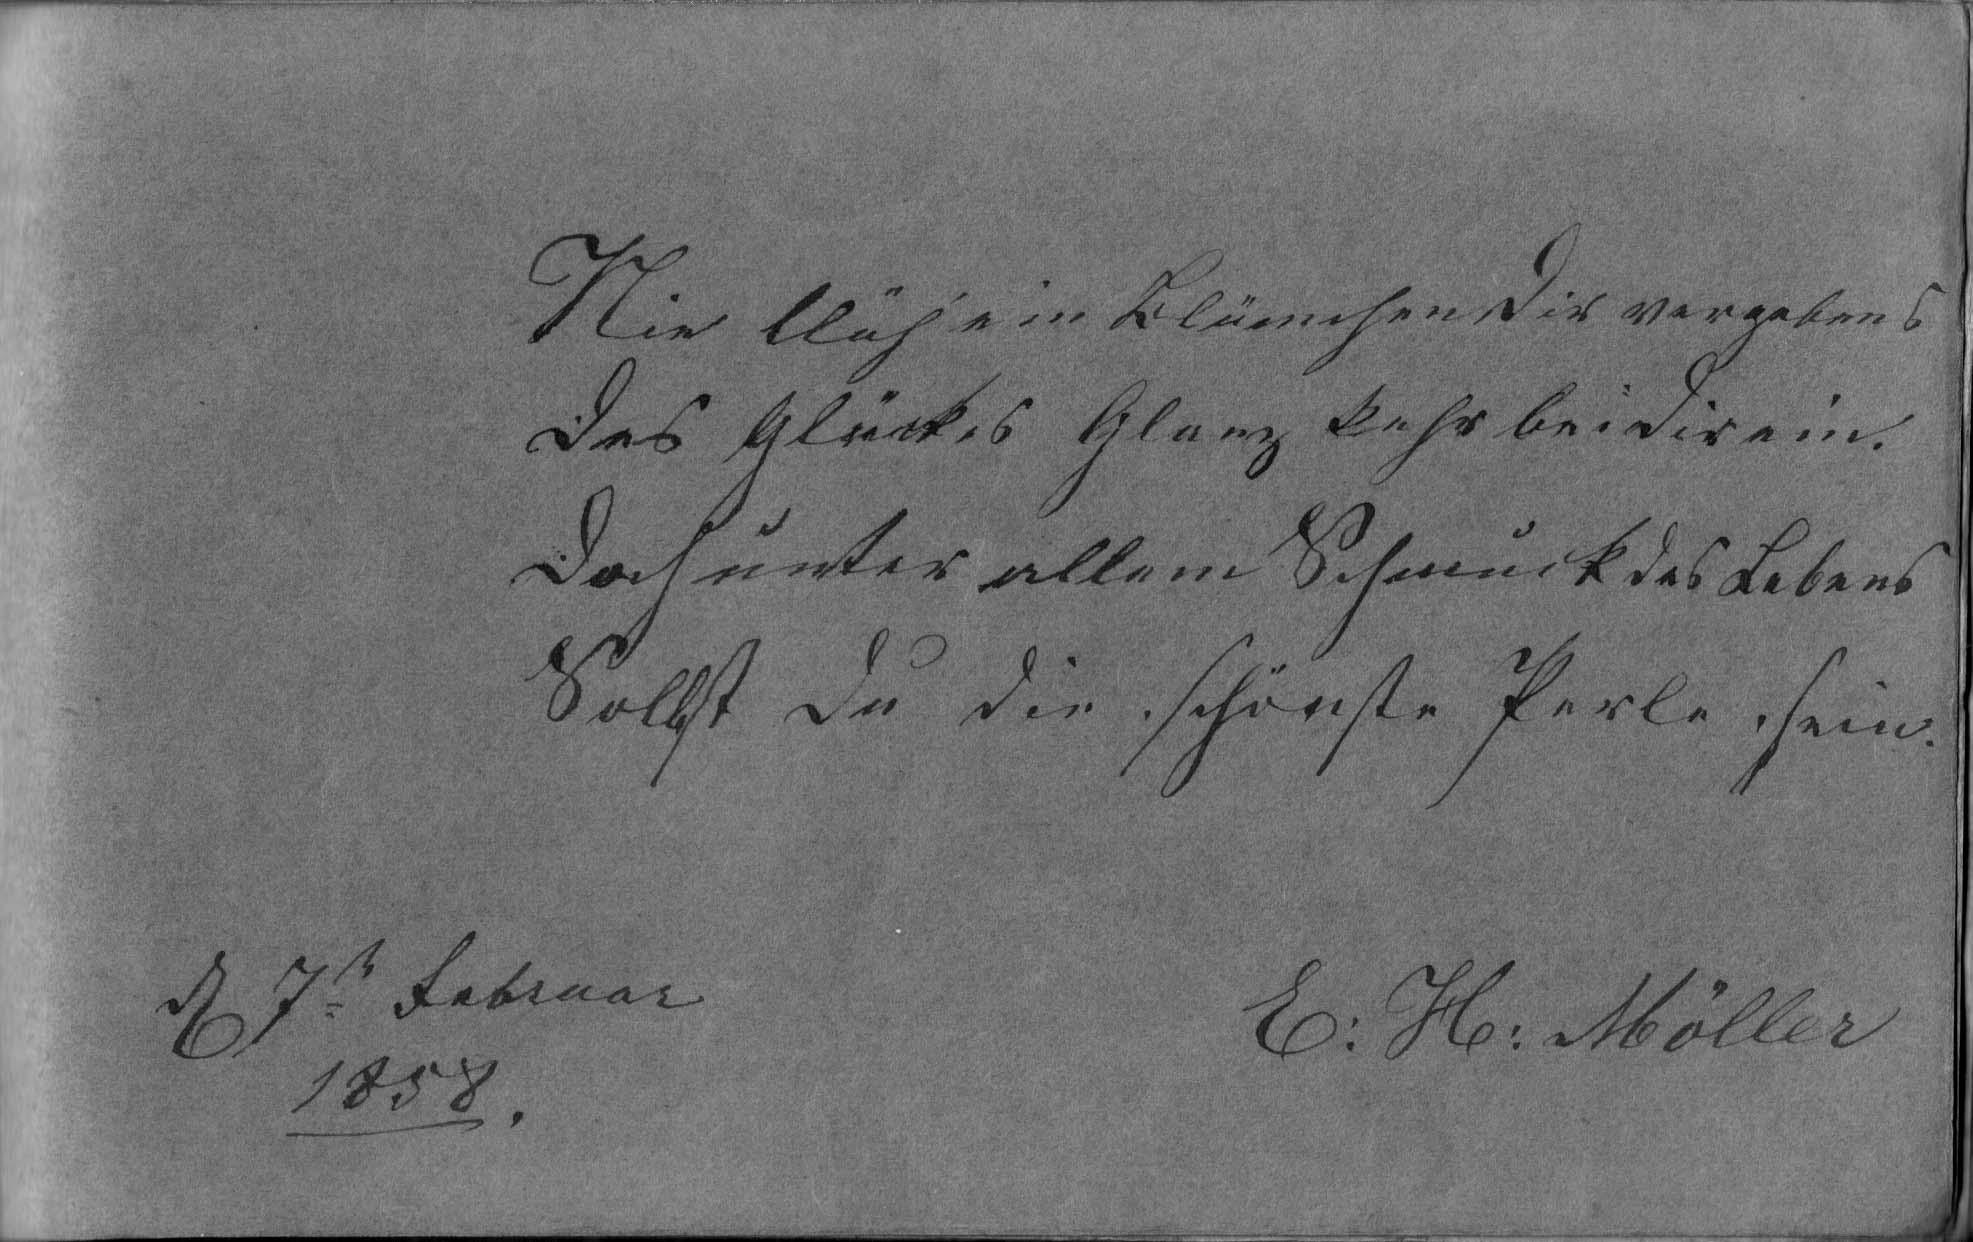 Nie blüh' ein Blümchen Dir vergebens
Des Glückes Glanz kehr bei Dir ein.
Doch unter allem Schmuck des Lebens
Sollst Du die schönste Perle sein.
d 7t Februar
1858.
E: H: Möller